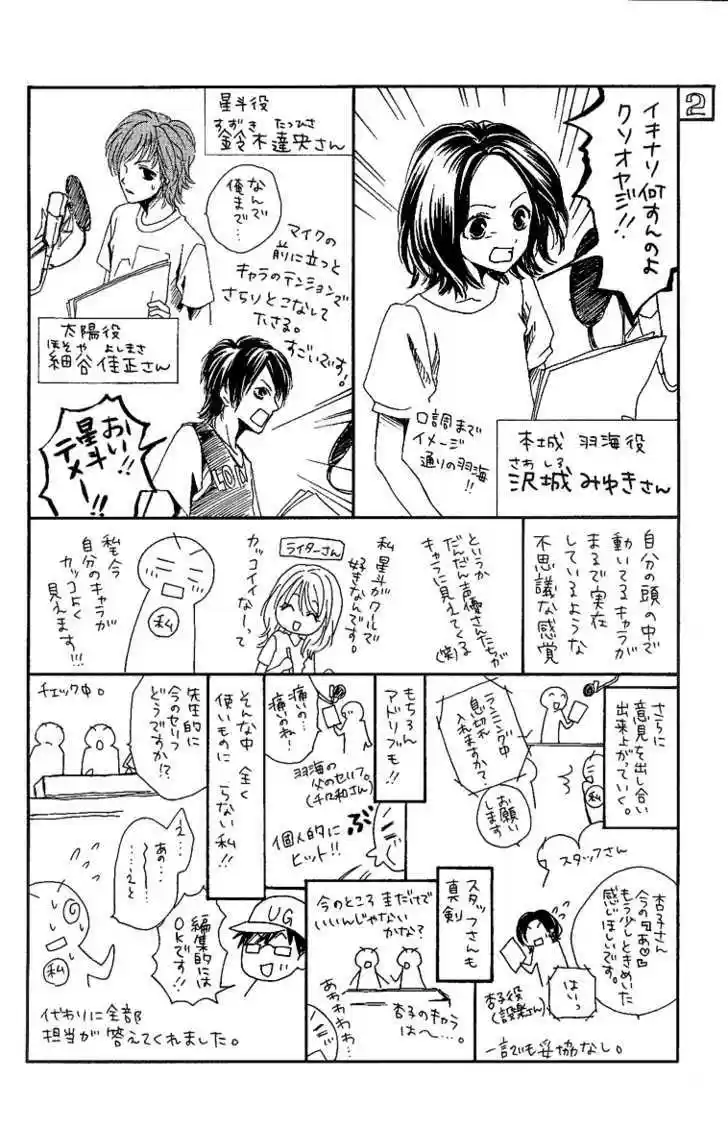 2
イキナリ何すんのよ
クソオヤジ!!
口調まで
イメージ
通りの羽海
!!
本城 羽海役
さわしろ
沢城みゆきさん
星斗役
すずき たつひさ
鈴木達央さん
なんで
俺まで…
マイクの
前に立つと
キャラのテンションで
さらりとこなして
下さる。
すごいです。
太陽役
ほそや よしまさ
細谷佳正さん
おい!!
星斗
テメー!!
自分の頭の中で
動いてるキャラが
まるで実在
しているような
不思議な感覚
というか
だんだん声優さんたちが
キャラに見えてくる
(笑)
ライターさん
私 星斗がクールで
好きなんです。
カッコイイなーって
私も今
自分のキャラが
カッコよく
見えます!!!
私
さらに
意見を出し合い
出来上がっていく。
ランニング中
息切れ
入れますか?
お願い
します
私
スタッフさん
もちろん
アドリブも!!
痛いの…
痛いのね!
羽海の
父のセリフ。
(千々和さん)
個人的に
ヒット!!
ぶ
そんな中 全く
使いものに
らない私!!
チェック中。
先生的に
今のセリフ
どうですか!?
え…
あの…
……えと
私
編集的には
OKです!!
UG
代わりに全部
担当が答えてくれました。
スタッフさんも
真剣
今のところ まだけで
いいんじゃない
かな?
杏子のキャラ
は〜…。
あわわわわ…
杏子さん
今の「あ♡」
もう少しときめいた
感じほしいです。
はいっ
杏子役
(設楽さん)
一言でも妥協なし。